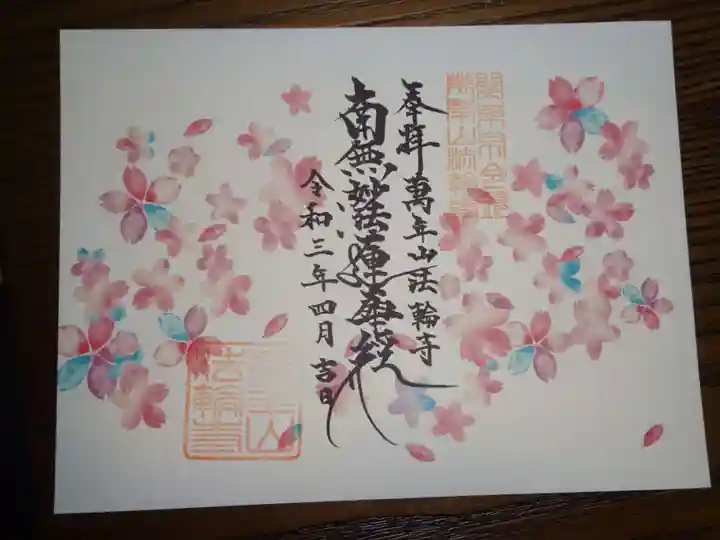 奉拝 萬年山法輪寺
南無妙法蓮華経
令和三年四月吉日
萬年山
法輪寺